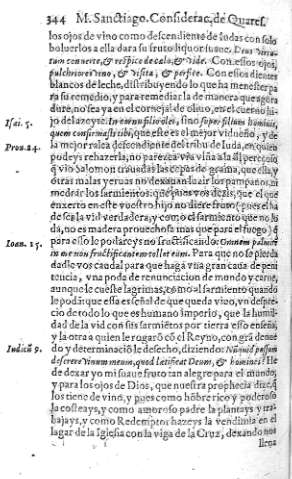 344 M. Sanctiago. Considerac. de Quares.
los ojos de vino como descendiente de Iudas con solo
boluerlos a ella dara su fruto liquor suaue. Deus virtu-
tum conuerte, & respice de cælo, & vide. Con essos ojos,
pulchriores vino, & visita, & perfice. Con essos dientes
blancos de leche, distribuyendo lo que ha menester pa
ra su remedio, y para remediar la de manera que agora
dure, no sea ya en el cornejal de olmo, en el cuerno hi-
Isai. 5. jo del azeyte. In cornu filio olei, sino super filium hominis
quem confirmasti tibi, que este es el mejor vidueño, y de
Prou. 24. la mejor ralea descendiente del tribu de Iuda, en quien
podeys rehazerla, no parezca viña a la del perezoso,
q̃ vio Salomon trauadas las cepas de grama, que ella, y
otras malas yeruas no dexauan luzir los pampanos, ni
medrar los sarmientos: que pues vos dezis, que el que
enxerto en este vuestro hijo no diere fruto (pues el ha
de ser la vid verdadera, y como el sarmiento que no lo
da, no es madera prouechosa mas que para el fuego) q̃
Ioan. 15. para esso le podareys no fructificando: Omnem palmitē
in me non fructificantem tollet eum. Para que no se pierda
dadle vos caudal para que haga vna gran caua de peni
tencia, vna poda de renunciacion de mundo y carne,
aunque le cueste lagrimas, como al sarmiento quando
le podã: que essa es señal de que queda viuo, vn despre-
cio de todo lo que es humano imperio, que la humil-
dad de la vid con sus sarmiẽtos por tierra esso enseña,
y la otra a quien le rogarõ cõ el Reyno, con grã denue
Iudicũ 9. do y determinaciõ le desecho, diziendo: Nũquid possum
deserere vinum meum, quod lætificat Deum, & homines? He
de dexar yo mi suaue fruto tan alegre para el mundo,
y para los ojos de Dios, que nuestra prophecia dize, q̃
los tiene de vino, y pues como hõbre rico y poderoso
la costeays, y como amoroso padre la plantays y tra-
bajays, y como Redemptor hazeys la vendimia en el
lagar de la Iglesia con la viga de la Cruz, dexando nos
llena